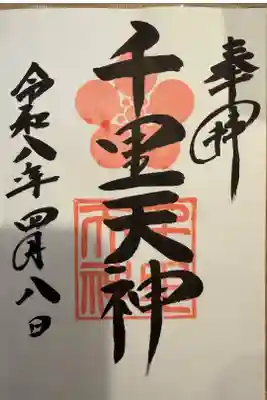 奉拝
千里天神
令和八年四月八日